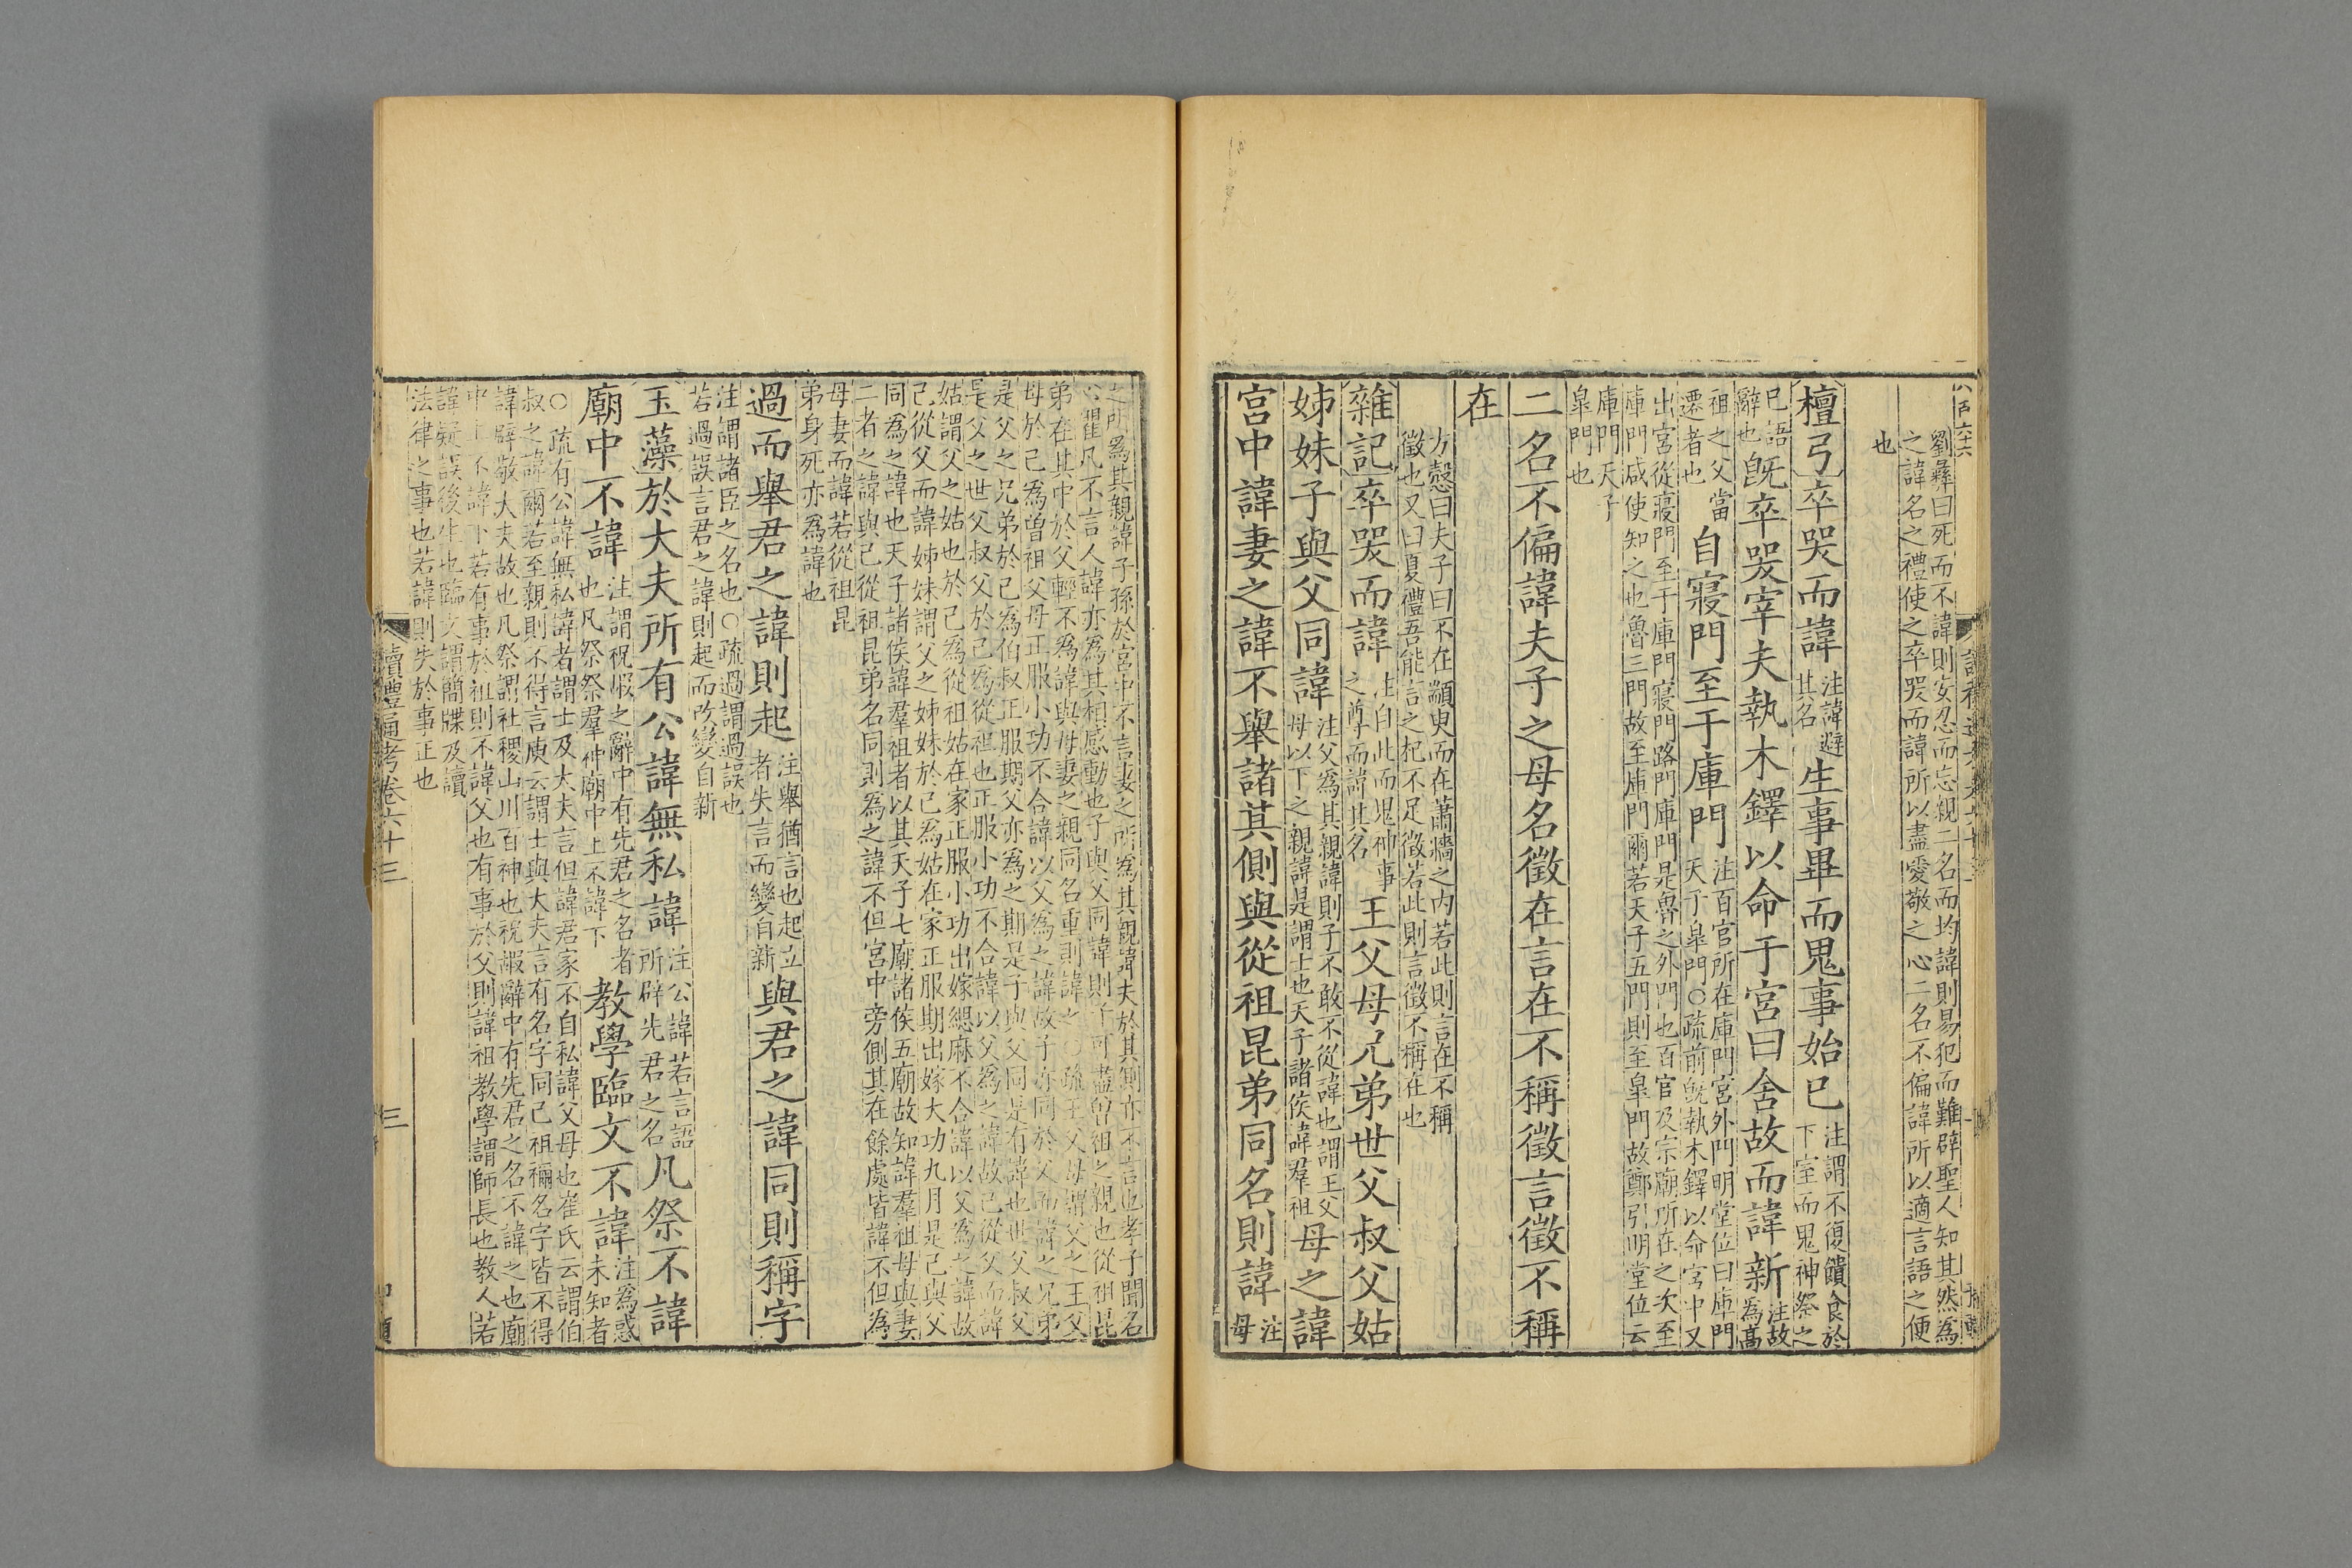 劉彝曰死而不諱則安忍而忘親二名而均諱則易犯而難辟聖人知其然為
之諱名之禮使之卒哭而諱所以盡愛敬之心二名不偏諱所以適言語之便
也
檀弓卒哭而諱注諱避其名生事畢而鬼事始已注謂不復饋食於下室而鬼神祭之
已語辭也既卒哭宰夫執木鐸以命于宮曰舍故而諱新注故為高
祖之父當遷者也自寢門至于庫門注百官所在庫門宮外門明堂位曰庫門天子臯門○疏前既執木鐸以命宮中又
出宮從寢門至于庫門寢門路門庫門是魯之外門也百官及宗廟所在之次至
庫門咸使知之也魯三門故至庫門爾若天子五門則至臯門故鄭引明堂位云
庫門天子
臯門也
二名不偏諱夫子之母名徵在言在不稱徵言徵不稱
在
方慤曰夫子曰不在顓臾而在蕭牆之內若此則言在不稱
徵也又曰夏禮吾能言之杞不足徵若此則言徵不稱在也
雜記卒哭而諱注自此而鬼神事之尊而諱其名王父母兄弟世父叔父姑
姊妹子與父同諱注父為其親諱則子不敢不從諱也謂王父母以下之親諱是謂士也天子諸侯諱羣祖母之諱
宮中諱妻之諱不舉諸其側與從祖昆弟同名則諱注母
之所為其親諱子孫於宮中不言妻之所為其親諱夫於其側亦不言也孝子聞名
心瞿凡不言人諱亦為其相感動也子與父同諱則子可盡曾祖之親也從祖昆
弟在其中於父輕不為諱與母妻之親同名重則諱之○疏王父母謂父之王父
母於己為曾祖父母正服小功不合諱以父為之諱故子亦同於父而諱之兄弟
是父之兄弟於己為伯叔正服期父亦為之期是子與父同是有諱也世父叔父
是父之世父叔父於己為從祖也正服小功不合諱以父為之諱故己從父而諱
姑謂父之姑也於己為從祖姑在家正服小功出嫁緦麻不合諱以父為之諱故
己從父而諱姊妹謂父之姊妹於己為姑在家正服期出嫁大功九月是己與父
同為之諱也天子諸侯諱羣祖者以其天子七廟諸侯五廟故知諱羣祖母與妻
二者之諱與己從祖昆弟名同則為之諱不但宮中旁側其在餘處皆諱不但為
母妻而諱若從祖昆
弟身死亦為諱也
過而舉君之諱則起注舉猶言也起立者失言而變自新與君之諱同則稱字
注謂諸臣之名也○疏過謂過誤也
若過誤言君之諱則起而改變自新
玉藻於大夫所有公諱無私諱注公諱若言語所辟先君之名凡祭不諱
廟中不諱注謂祝嘏之辭中有先君之名者也凡祭祭羣神廟中上不諱下教學臨文不諱注為惑未知者
○疏有公諱無私諱者謂士及大夫言但諱君家不自私諱父母也崔氏云謂伯
叔之諱爾若至親則不得言庾云謂士與大夫言有名字同己祖禰名字皆不得
諱辟敬大夫故也凡祭謂社稷山川百神也祝嘏辭中有先君之名不諱之也廟
中上不諱下若有事於祖則不諱父也有事於父則諱祖教學謂師長也教人若
諱疑誤後生也臨文謂簡牒及讀
法律之事也若諱則失於事正也
讀禮通考卷六十三
三